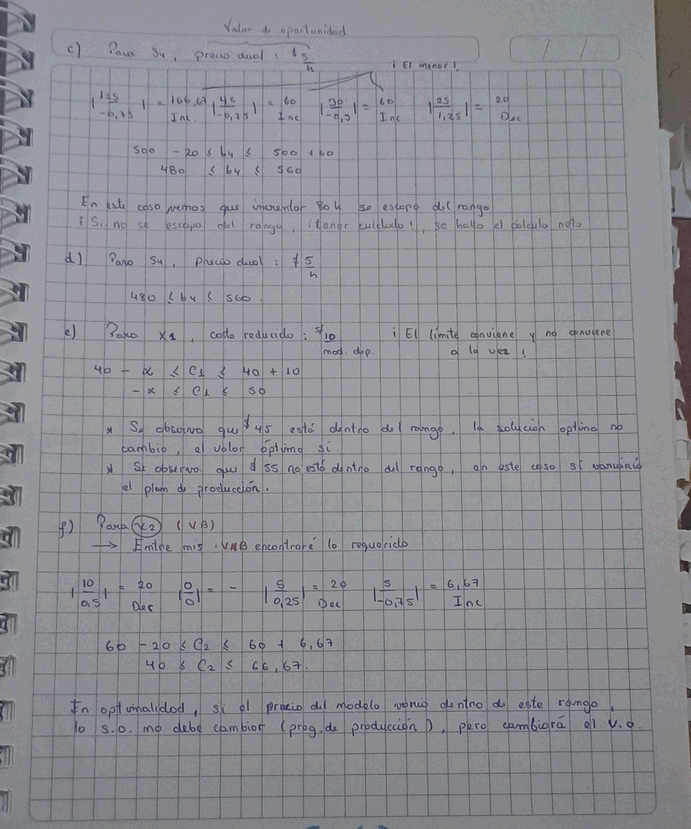 Valor de oportunidad
c) Para S4, precio dual: $ 5/h
¡El menor!
|125/-0,75| = 166,67 Inc. |45/-0,75| = 60 Inc |30/-0,5| = 60 Inc |25/1,25| = 20 Dec
500 - 20 ≤ b4 ≤ 500 + 60
480 ≤ b4 ≤ 560
En este caso vemos que incrementar 80h se escapa del rango
¡Si no se escapa del rango, ¡tener cuidado!, se halla el cálculo neto
d) Para S4, precio dual: $ 5/h
480 ≤ b4 ≤ 560.
e) Para X1, costo reducido: $/10 mod. dep.
¡El límite conviene y no conviene a la vez!
40 - α ≤ C1 ≤ 40 + 10
- α ≤ C1 ≤ 50
* Se observa que $ 45 está dentro del rango, la solución óptima no
cambia, el valor óptimo sí.
* Se observa que $ 55 no está dentro del rango, en este caso sí variaría
el plan de producción.
f) Para X2 (VB)
→ Entre mis VNB encontraré lo requerido
|10/0,5| = 20 Dec |0/0| = - |5/0,25| = 20 Dec |5/-0,75| = 6,67 Inc
60 - 20 ≤ C2 ≤ 60 + 6,67
40 ≤ C2 ≤ 66,67.
En optimalidad, si el precio del modelo varía dentro de este rango,
la s.o. no debe cambiar (prog. de producción), pero cambiará el V.O.